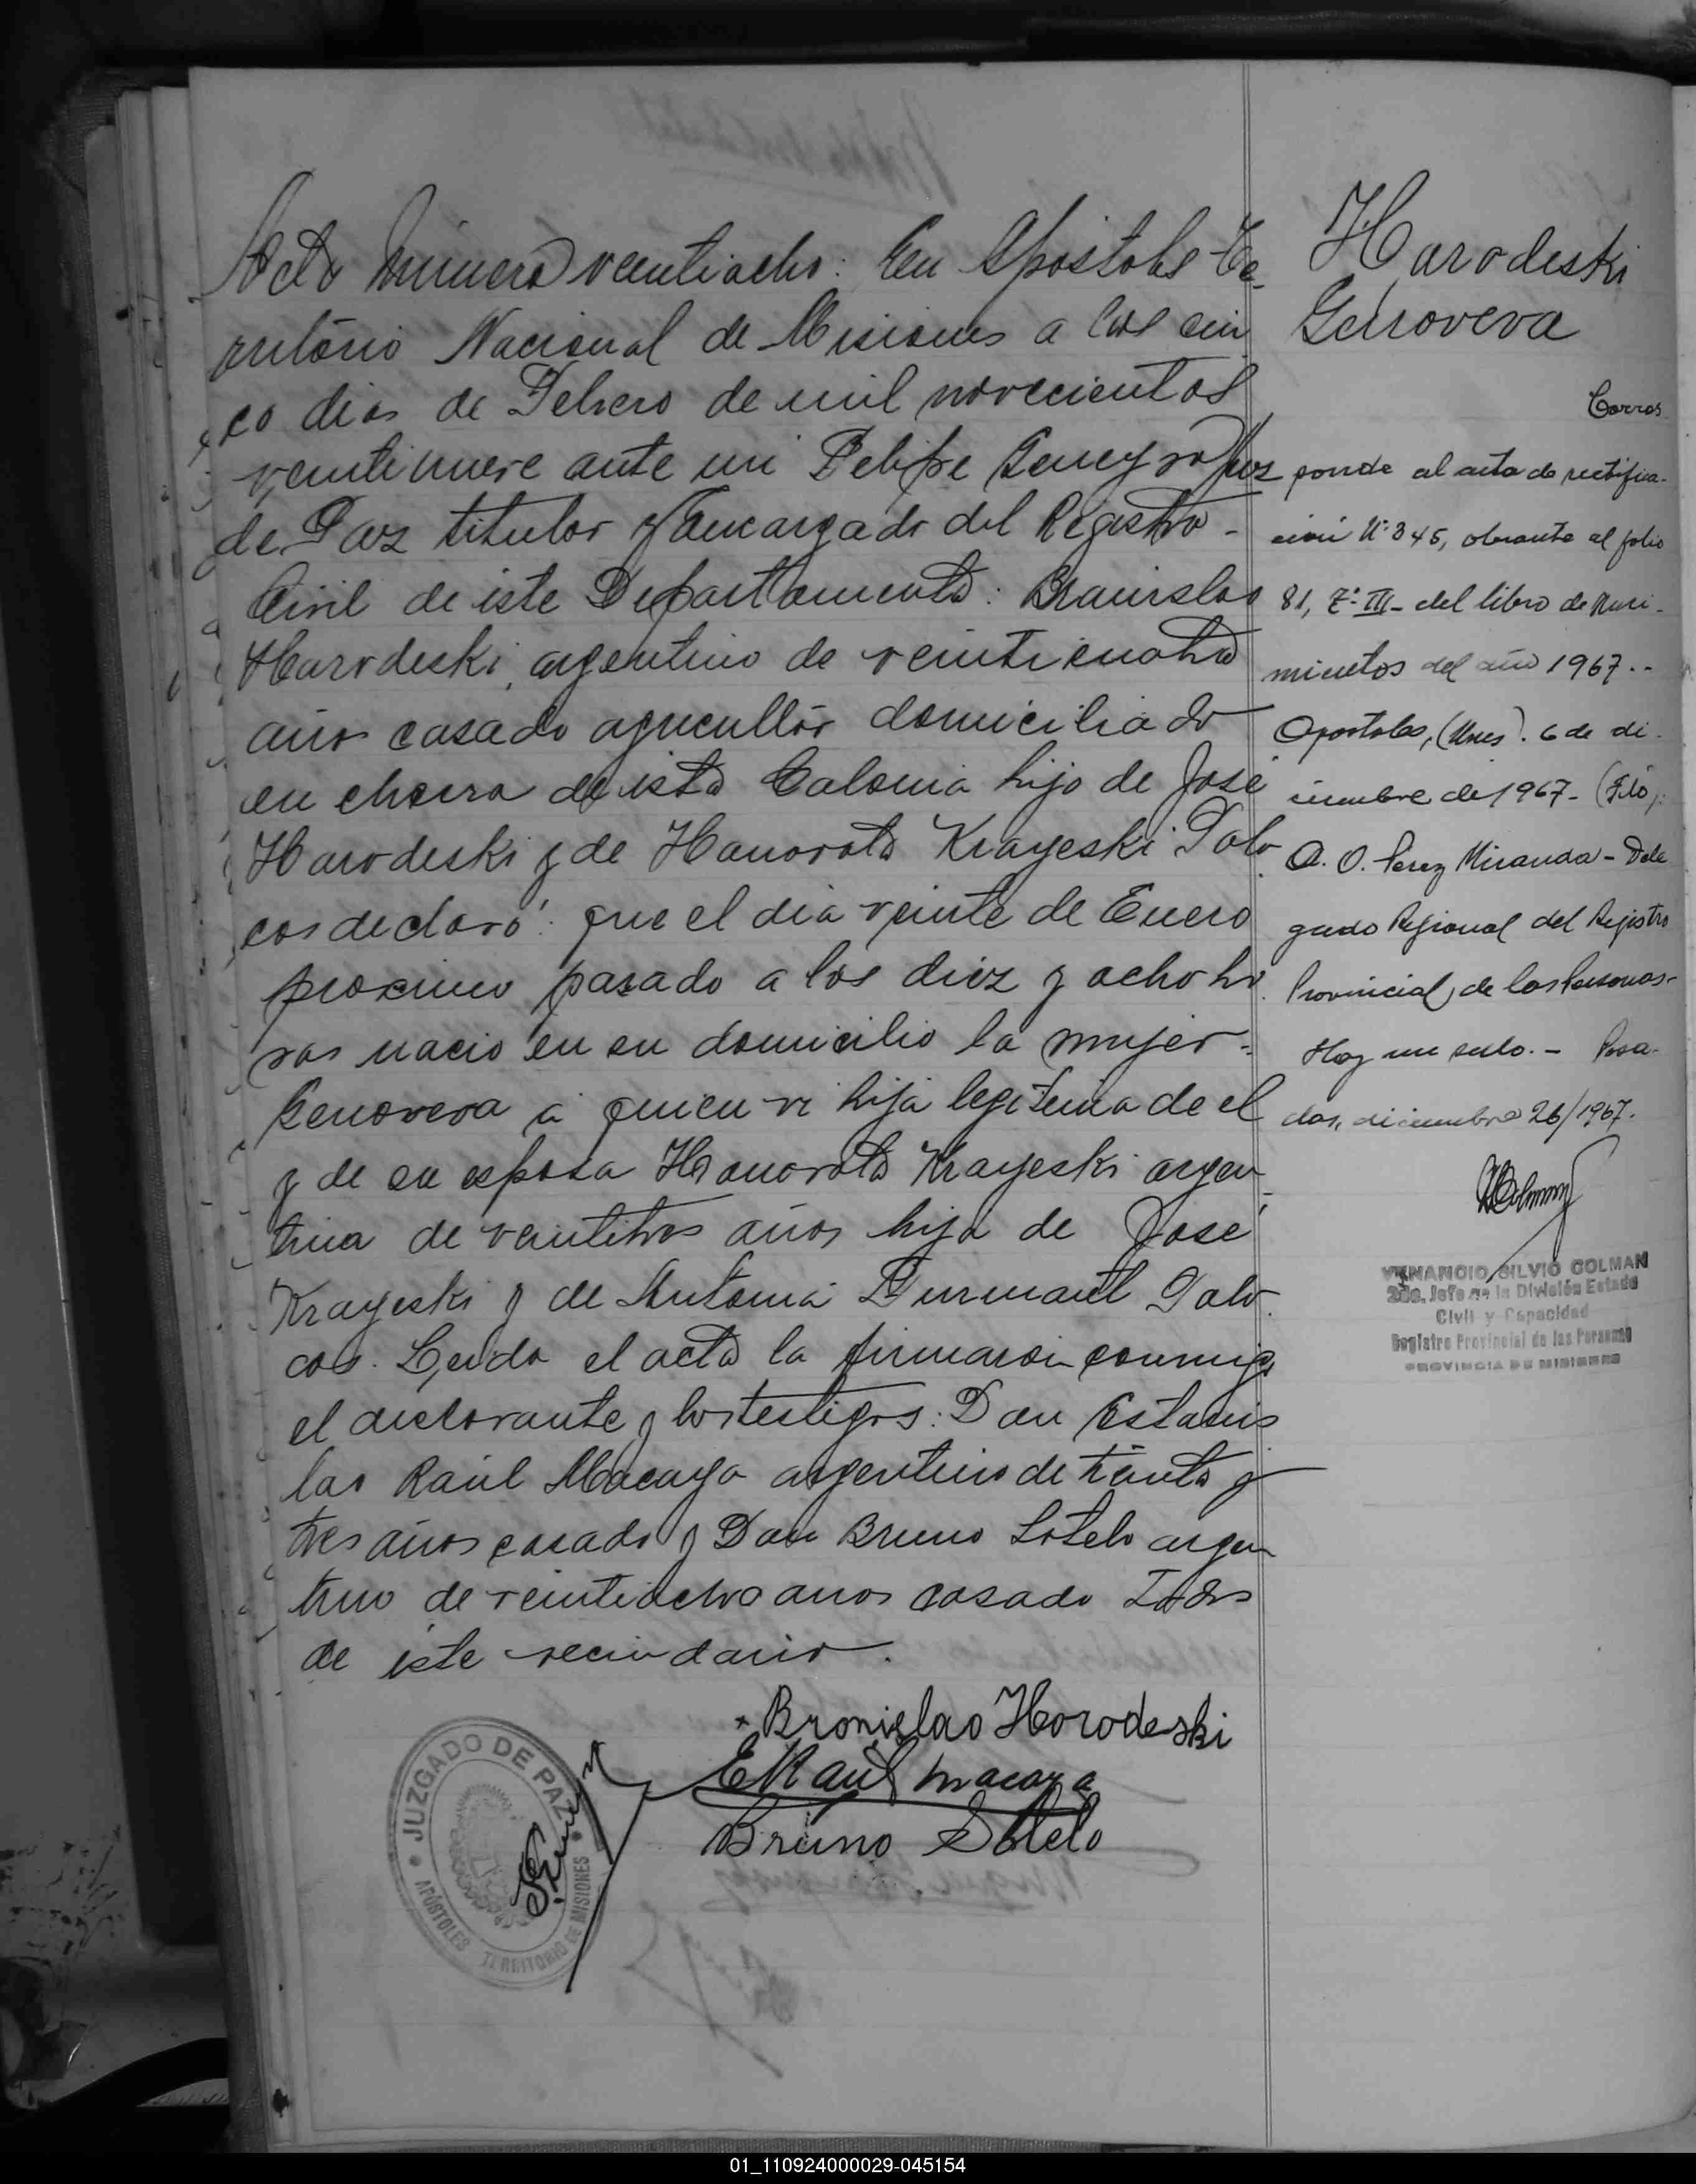 Acta número ventiocho: En Apostoles Te-
rritorio Nacional de Misiones a los cin
co dias de Febrero de mil novecientos
ventinueve ante mi Felipe Juez
de Paz titular y encargado del Registro -
Civil de este Departamento: Branislao
Harodeski, argentino de veinticuatro
años casado agricultor domiciliado
en chacra de esta Colonia hijo de José
Harodeski y de Honorata Krayeski Pola-
cos declaró: que el dia veinte de Enero
proximo pasado a las diez y ocho ho-
ras nacio en su domicilio la mujer -
Genoveva a quien vi hija legitima de el
y de su esposa Honorata Krayeski argen-
tina de veintitres años hija de José
Krayeski y de Antonia Polo-
cos. Leida el acta la firmaron conmigo
el declarante y los testigos: Don Estanis
lao Raúl Macaya argentino de treinta y
tres años casado y Don Bruno Sotelo argen
tino de veintiocho anos casado Todos
de este vecindario.
Bronislao Horodeski
E Raúl Macaya
Bruno Sotelo
JUZGADO DE PAZ
APÓSTOLES TERRITORIO DE MISIONES
Harodeski
Genoveva
Corres-
ponde al acta de rectifica-
ción N° 345, obrante al folio
81, T° III - del libro de Naci-
mientos del año 1967.-
Apostoles, (Mnes). 6 de di-
ciembre de 1967 - (Fdo):
A. O. Perez Miranda - Dele
gado Regional del Registro
Provincial de las Personas-
Hay un sello. - Posa-
das, diciembre 26/1967.
VENANCIO SILVIO COLMAN
2do. Jefe de la División Estado
Civil y Capacidad
Registro Provincial de las Personas
PROVINCIA DE MISIONES
01_110924000029-045154